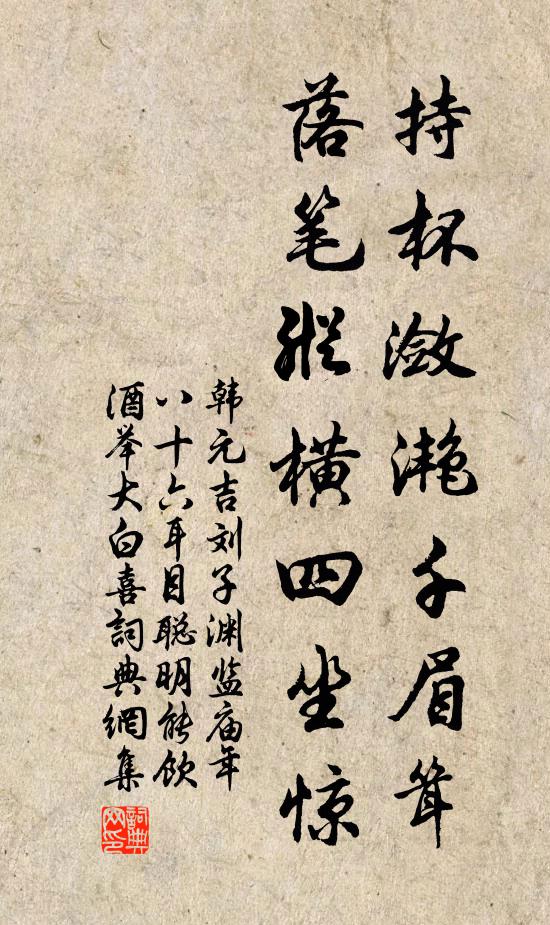 持杯潋滟千眉耸
落笔纵横四坐惊
韩元吉刘子渊监庙年
八十六耳目聪明能饮
酒举大白喜詞典網集
詞典
网印